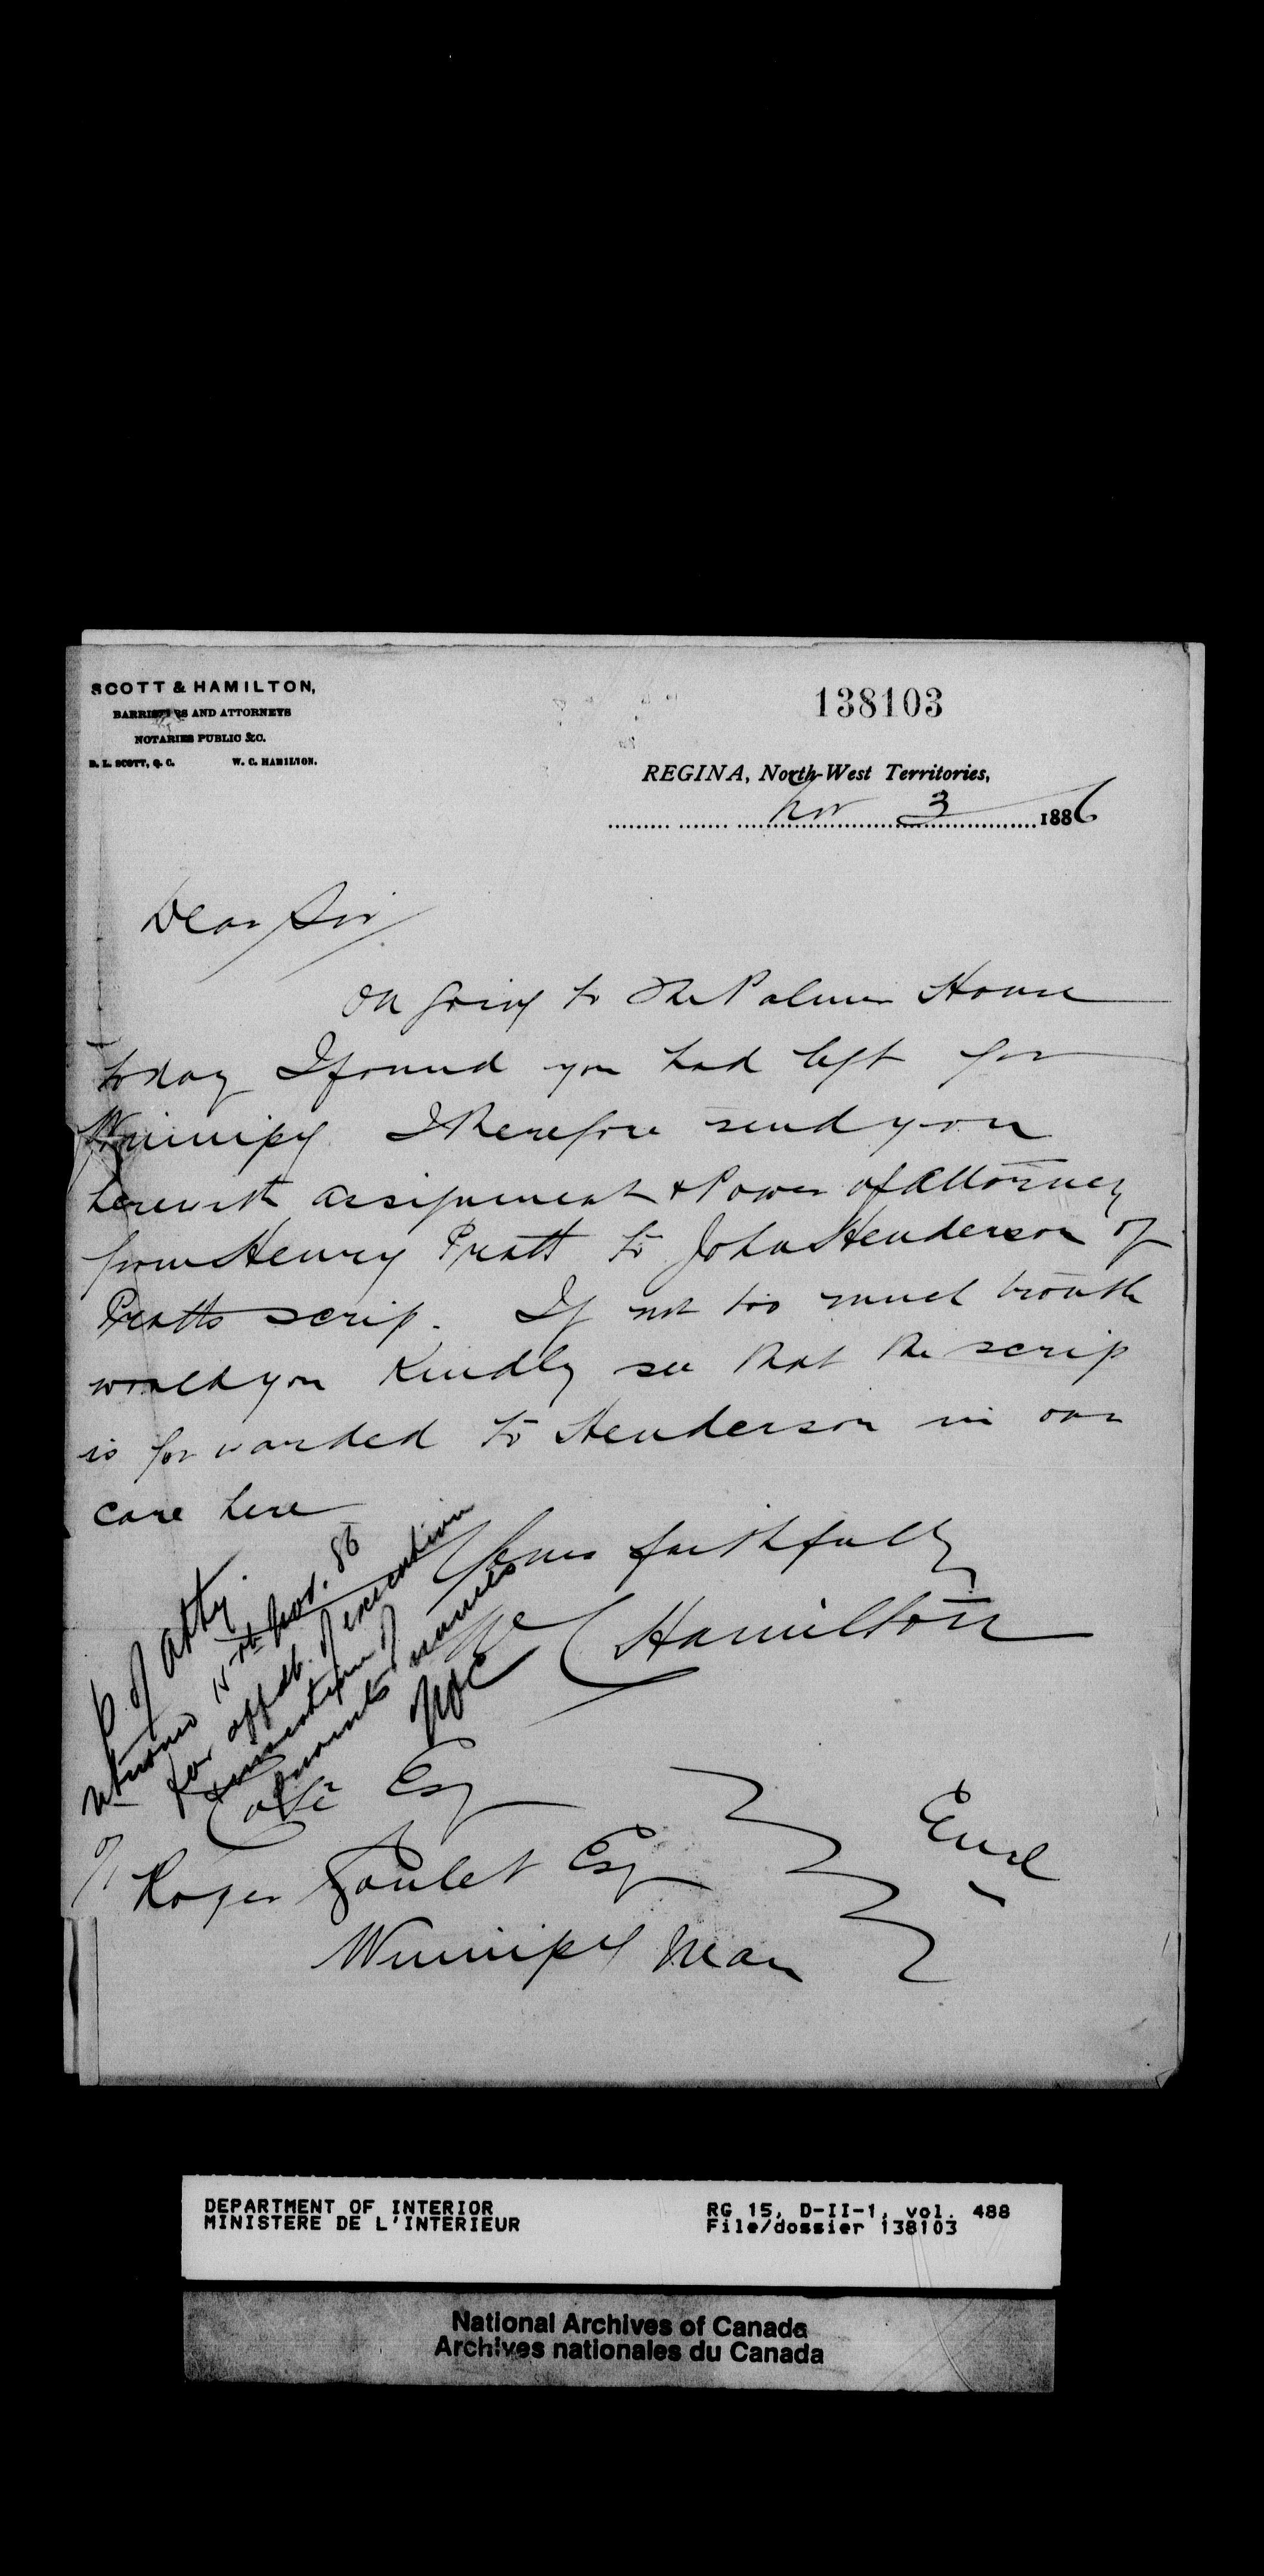 SCOTT & HAMILTON,
BARRISTERS AND ATTORNEYS
NOTARIES PUBLIC &C.
D. L. SCOTT, Q. C. W. C. HAMILTON.
138103
REGINA, North-West Territories,
Nov 3 1886
Dear Sir
On going to the Palmer House
today I found you had left for
Winnipeg I therefore send you
herewith assignment & Power of Attorney
from Henry Pratt to John Henderson of
Pratts scrip. If not too much trouble
would you Kindly see that the scrip
is forwarded to Henderson in our
care here
Yours faithfully
W C Hamilton
P. of Atty
returned 15th Nov. 86
for affdt. of execution
& insertion of
names
NOC
Coté Esq
c/o
Roger Goulet Esq
Winnipeg Man
Encl
DEPARTMENT OF INTERIOR
MINISTERE DE L'INTERIEUR
RG 15, D-II-1, vol. 488
File/dossier 138103
National Archives of Canada
Archives nationales du Canada